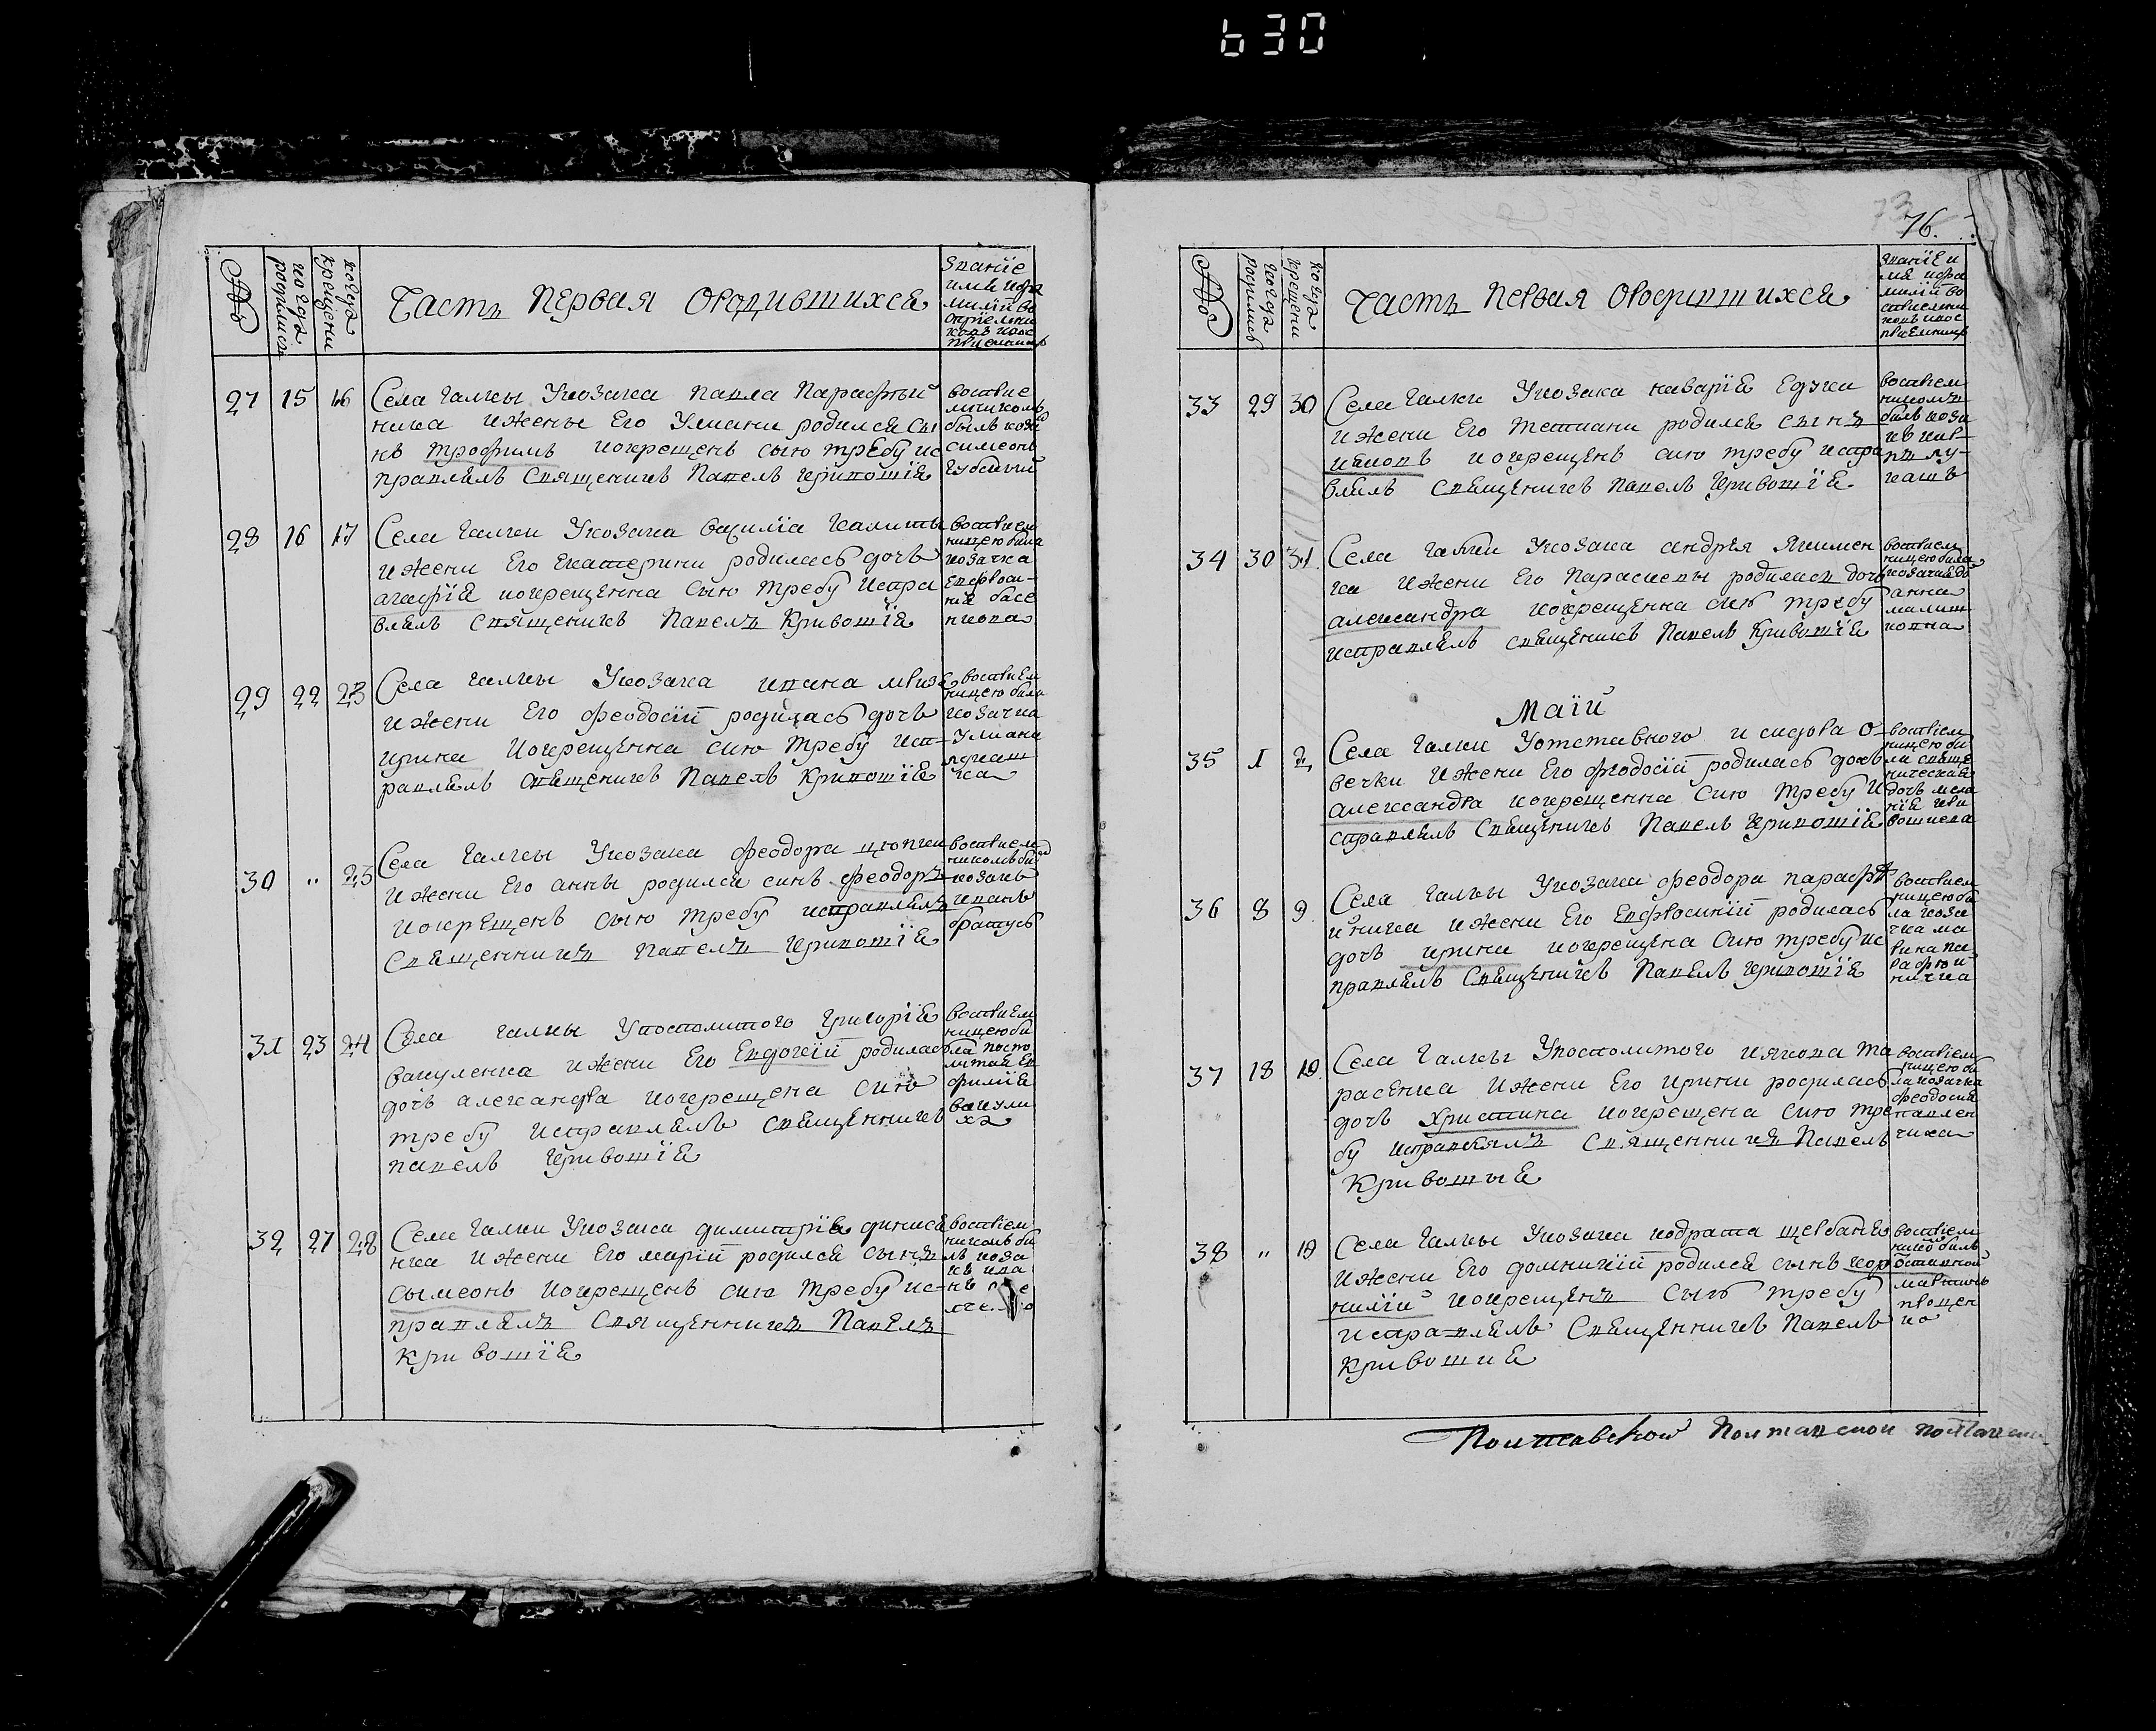 630
№
когда родились
когда крещени
Часть первая ородившихся
Звание
имя и фа
милии во
27 15 16 Села Галки У козака Павла Парафѣй
ника и жены Его Улиани родился сы
нъ Трофимъ и окрещенъ сыю требу ис
правлялъ Священикъ Павелъ Кривошія
восприе
мникомъ
былъ коза
симеонъ
Губскый
28 16 17 Села Галки У козака Василїа Калиты
и жени Его Екатерини родилась дочь
агафія и окрещенна сыю требу испра
влялъ Священикъ Павелъ Кривошїя
восприем
ницею била
козачка
Евфроси-
нія басе
нкова
29 22 23 Села Галкы У козака ивана
и жени Его феодосїй родилась дочь
ирина и окрещенна сию требу исп-
равлялъ священикъ Павелъ Кривошїя
восприем
ницею била
козачка
Улиана
лукаш
ка
30 " 25 Села Галкы У козака феодора цюпки
и жени Его анны родился синъ феодоръ
и окрещенъ сыю требу исправлялъ
Священникъ Павелъ Кривошїя
восприем
никомъ би
козакъ
иванъ
братусь
31 23 24 Села Галкы У посполитого Григорїя
вакуленка и жени Его Евдокїй родилась
дочь александра и окрещена сию
требу исправлялъ священникъ
павелъ Кривошїя
восприем
ницею би
ла поспо
литая Ев
филия
вакули
ха
32 27 28 Села Галки У козака димитрїя дениса
нка и жени Его марїй родился сынъ
сымеонъ и окрещенъ сию требу ис-
правлялъ Священникъ Павелъ
Кривошїя
восприем
никомъ би
лъ коза
къ ива
нъ
76.
№
когда родились
когда крещени
Часть первая ородившихся
Звание и
мя и фа
милии во
33 29 30 Села Галки У козака назарїя Едуки
и жени Его Тетиани родился сынъ
иаковъ и окрещенъ сию требу испра
влялъ священикъ Павелъ Кривошїя.
восприем
никомъ
билъ коза
лу-
кашъ
34 30 31. Села Галки У козака андрѣя Якимен
ка и жени Его Параскевы родилася дочь
александра и окрещенна сию требу
исправлялъ священикъ Павелъ Кривошїя
восприем
ницею била
анна
малиш
ковна
Маїй
35 1 2 Села Галки У отставного исидора о-
вечки и жени Его феодосїй родилась дочь
александра и окрещенна сию требу и
справлялъ священикъ Павелъ Кривошїя
восприем
ницею би
ла свяще
ническая
дочь мела
нїя Кри
вошиева
36 8 9. Села Галкы У козака феодора парафѣ
йника и жени Его Евфросинїй родилась
дочь ирина и окрещена сию требу ис
правлялъ священикъ Павелъ Кривошїя
восприем
ницею би
ла коза
чка ма
рина па
рафїй
ничка
37 18 19. Села Галкы У посполитого иякова та
расенка и жени Его ирини родилась
дочь христина и окрещена сию тре
бу исправлялъ Священникъ Павелъ
Кривошыя
восприем
ницею би
ла козачка
феодосия
павлен
чиха
38 " 19 Села Галкы У козака кодрата щербанко
и жени Его домникїй родился сынъ кор
нилїй и окрещенъ сыю требу
исправлялъ Священникъ Павелъ
Кривошия
восприем
нико билъ
отставной
мартинъ
ивщен
ко
Полтавской Полтавской Полтавской